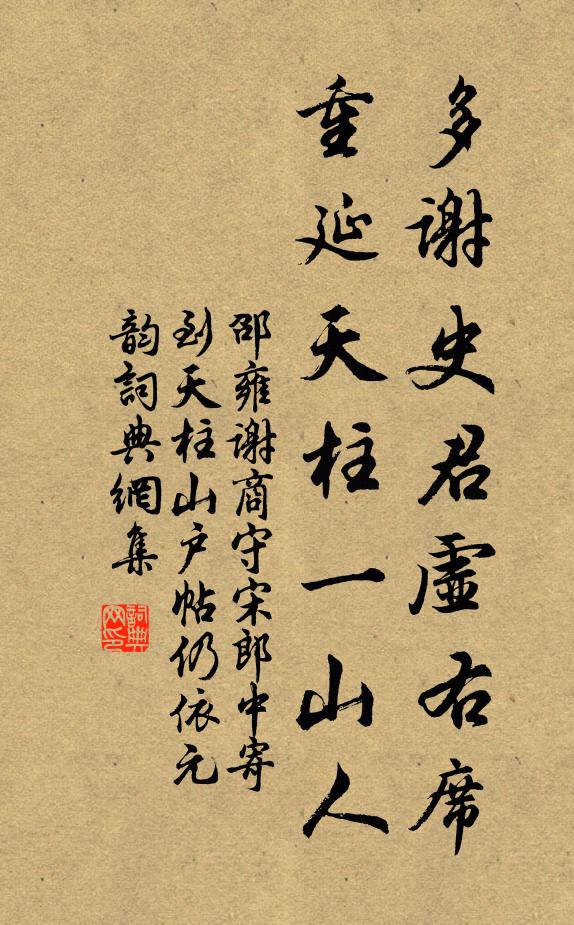 多谢史君虛右席
重延天柱一山人
邵雍谢商守宋郎中寄
到天柱山户帖仍依元
韵詞典網集
詞典
网印